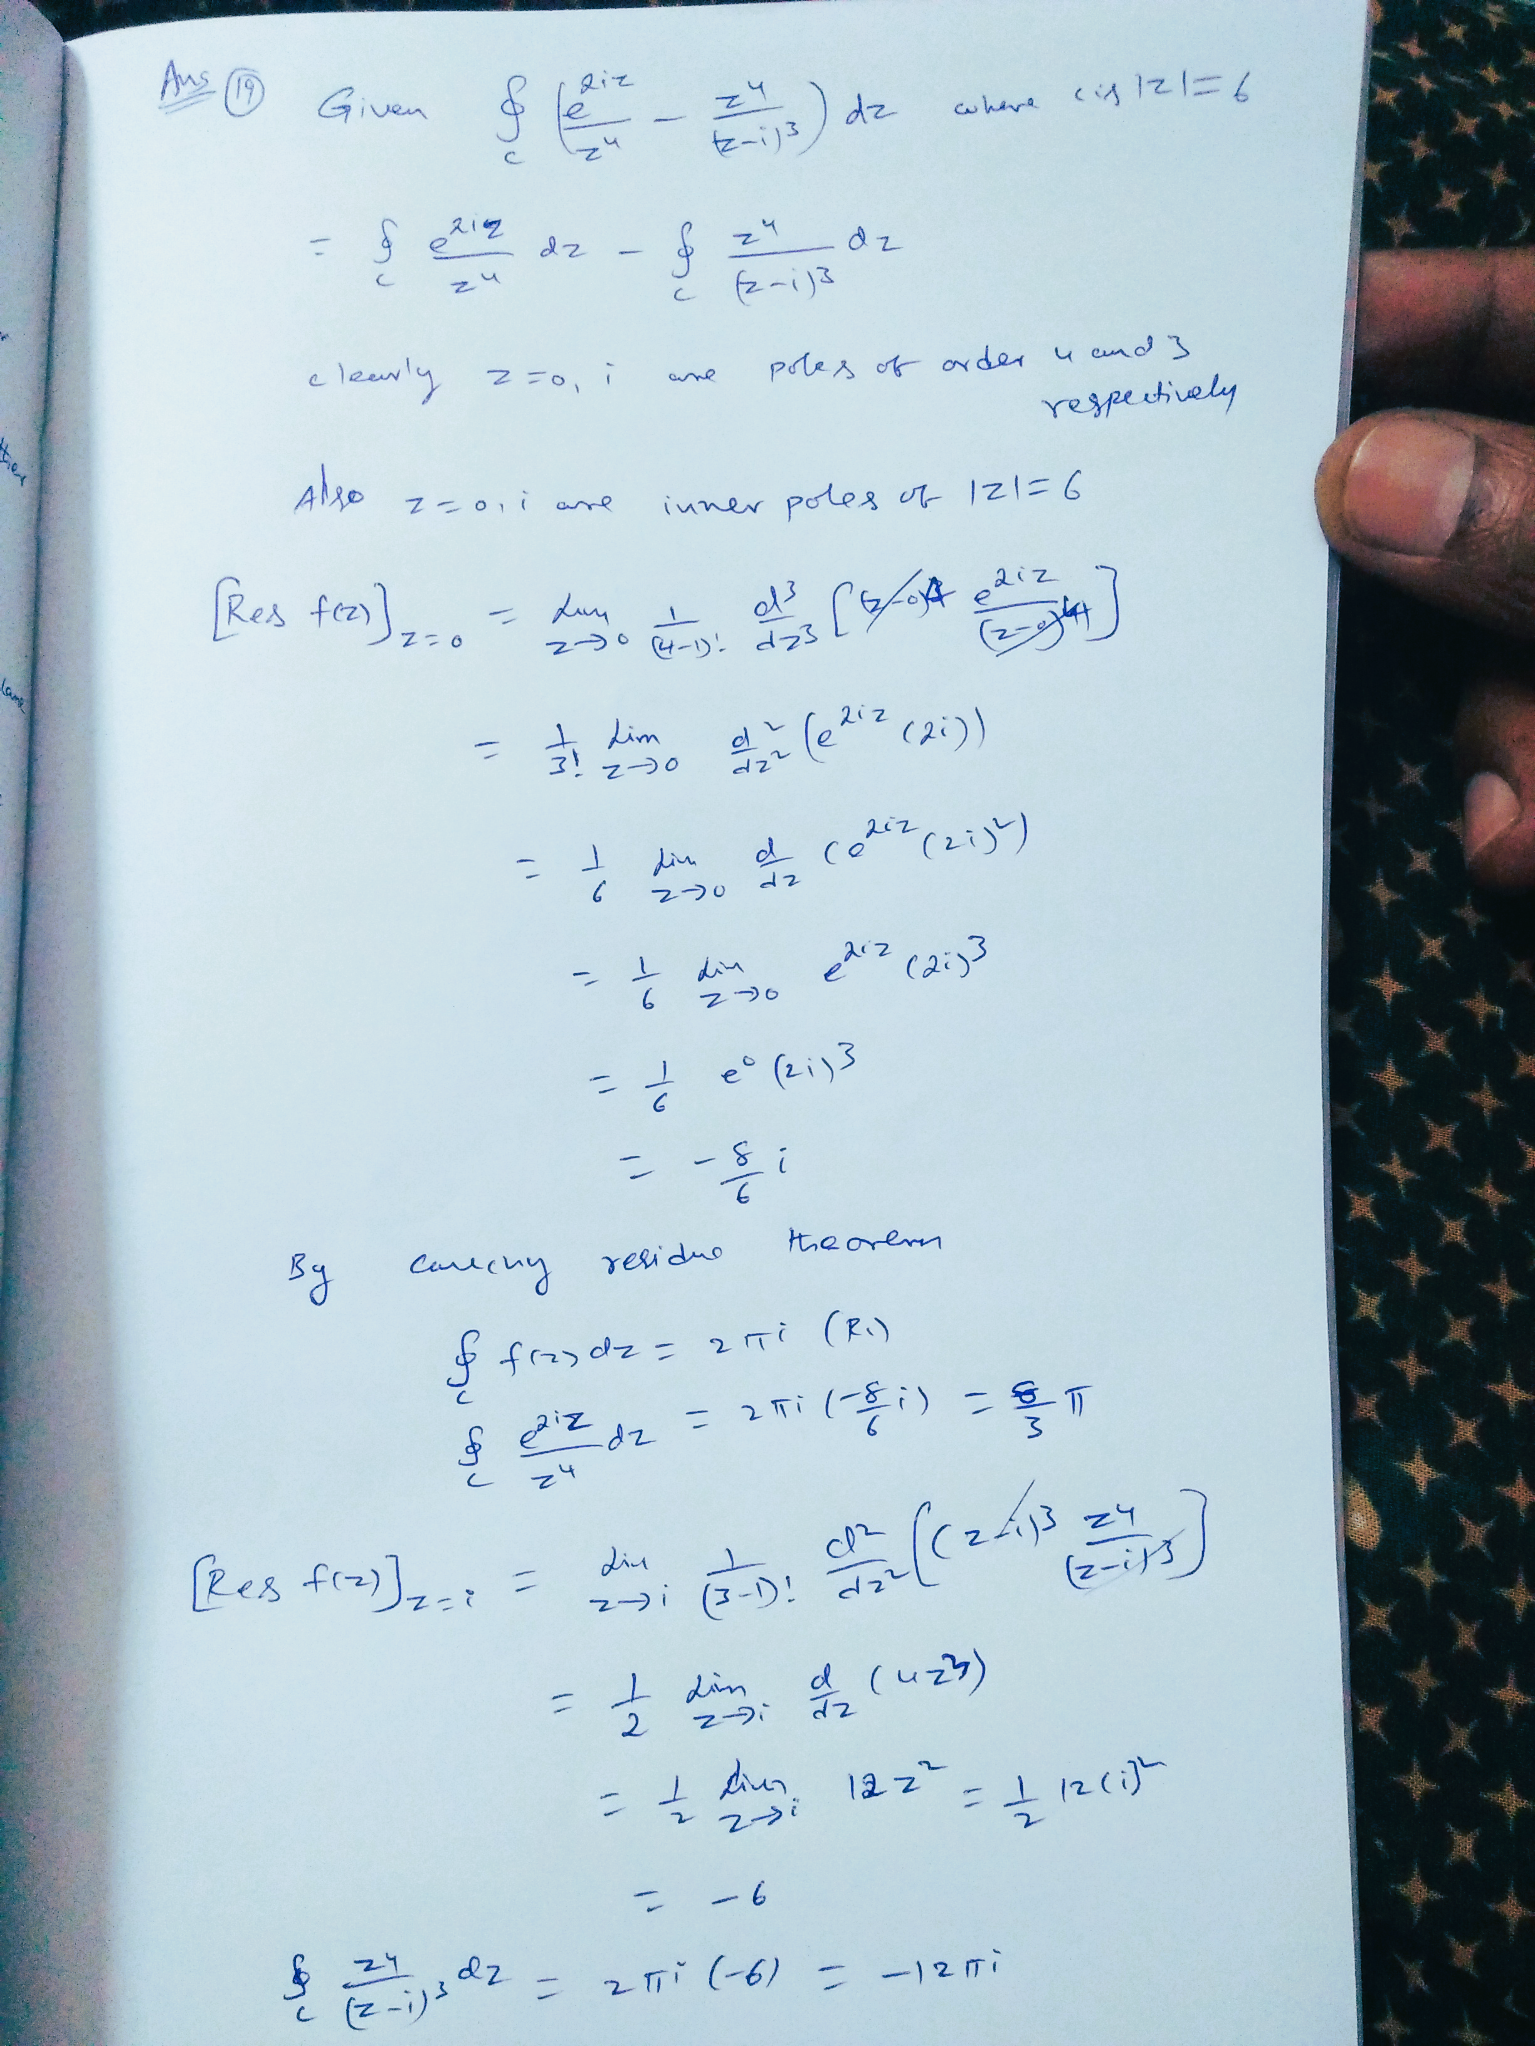 Ans (19) Given ∮_c (e^{2iz}/z^4 - z^4/(z-i)^3) dz where c is |z|=6
= ∮_c e^{2iz}/z^4 dz - ∮_c z^4/(z-i)^3 dz
clearly z=0, i are poles of order 4 and 3
respectively
Also z=0, i are inner poles of |z|=6
[Res f(z)]_{z=0} = Lim_{z→0} 1/(4-1)! d^3/dz^3 [(z-0)^4 e^{2iz}/(z-0)^4]
= 1/3! Lim_{z→0} d^2/dz^2 (e^{2iz} (2i))
= 1/6 Lim_{z→0} d/dz (e^{2iz} (2i)^2)
= 1/6 Lim_{z→0} e^{2iz} (2i)^3
= 1/6 e^0 (2i)^3
= -8/6 i
By cauchy residue theorem
∮_c f(z) dz = 2πi (R_1)
∮_c e^{2iz}/z^4 dz = 2πi (-8/6 i) = 8/3 π
[Res f(z)]_{z=i} = Lim_{z→i} 1/(3-1)! d^2/dz^2 [(z-i)^3 z^4/(z-i)^3]
= 1/2 Lim_{z→i} d/dz (4z^3)
= 1/2 Lim_{z→i} 12z^2 = 1/2 12(i)^2
= -6
∮_c z^4/(z-i)^3 dz = 2πi (-6) = -12πi